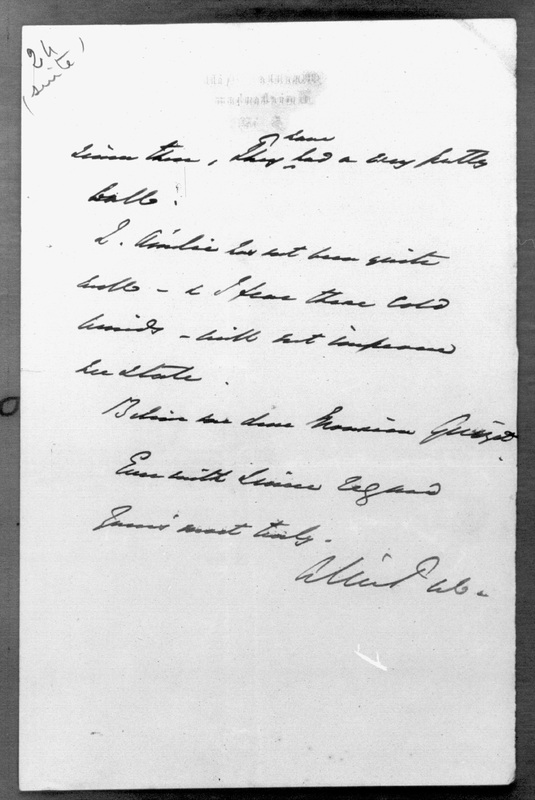 24
(suite)
since then, They have had a very pretty
ball.
has not been quite
well - & I fear these cold
winds - will not improve
her state.
Believe me dear Monsieur Guizot.
Ever with sincere regard
Yours most truly.